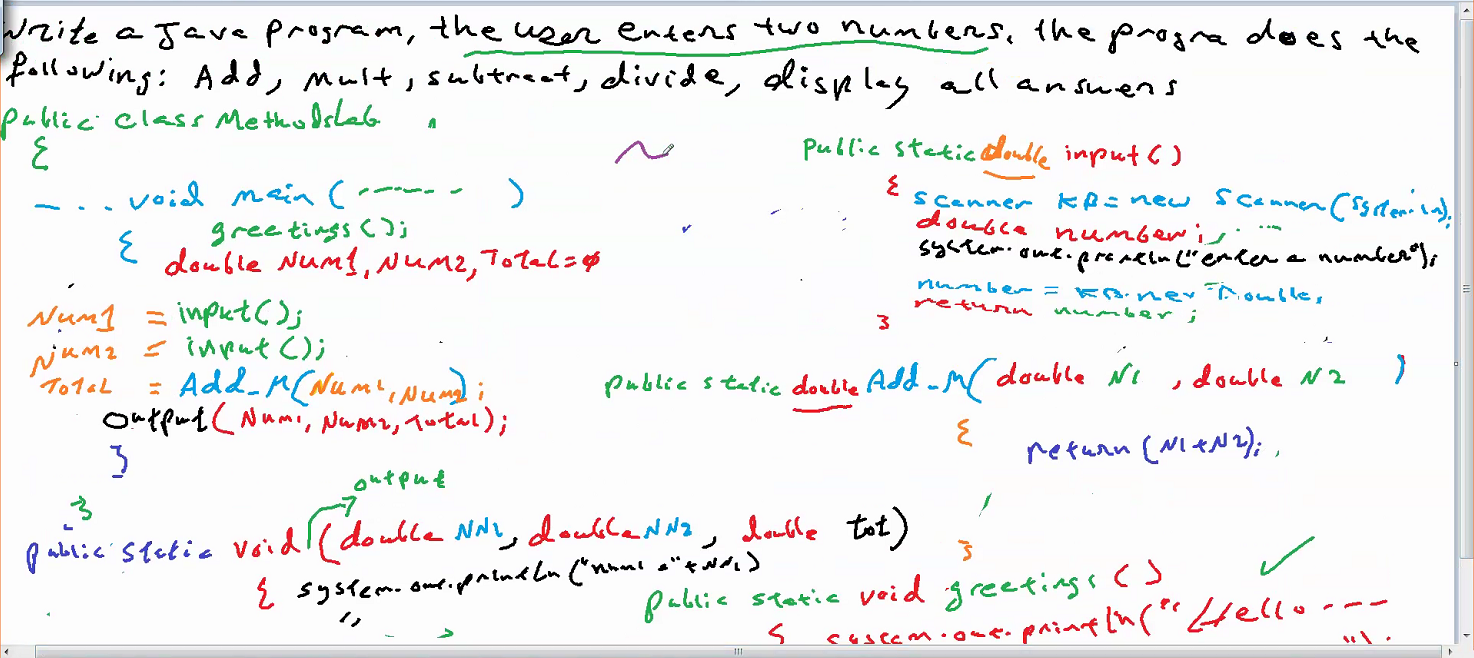 write a Java program, the user enters two numbers. the progra does the
following: Add, mult, subtract, divide, display all answers
public class MethodsLab
{
_ . . . void main ( ------ )
greetings();
{ double NUM1, NUM2, Total=0
Num1 = input();
Num2 = input();
Total = Add_M(Num1, Num2);
output( Num1, Num2, Total);
}
}
public static double input()
{ scanner KB = new Scanner(System.in);
double number;
system.out.println("enter a number");
number =
return number;
}
public static double Add_M( double N1 , double N2 )
{ return (N1+N2);
}
output
public static void (double NN1, double NN2, double tot)
{ system.out.println("num1 =" + NN1)
public static void greetings ()
{ system.out.println("Hello ---
");